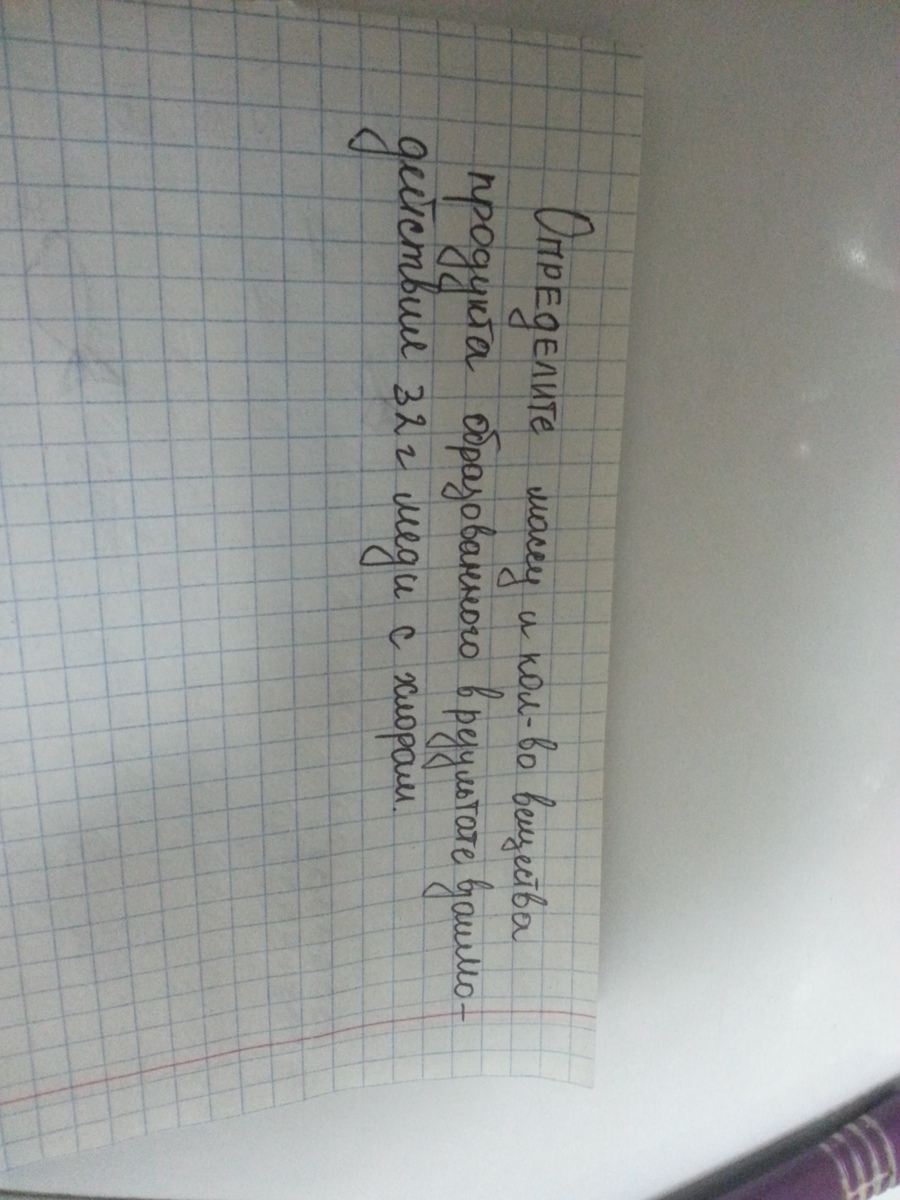 Определите массу и кол-во вещества
продукта образованного в результате взаимо-
действия 32 г меди с хлорам.